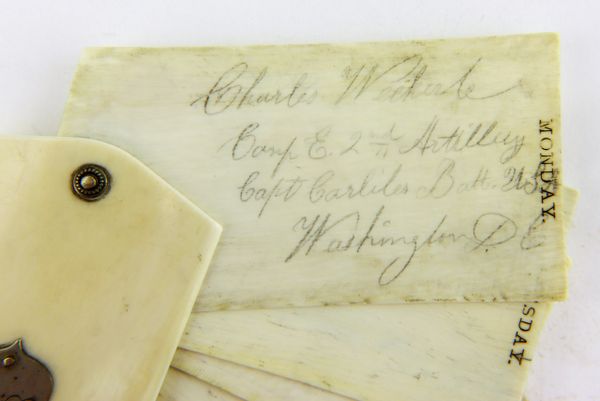 Charles
Comp E. 2nd Artillery
Capt Carliles Batt. US
Washington D C
MONDAY.
SDAY.